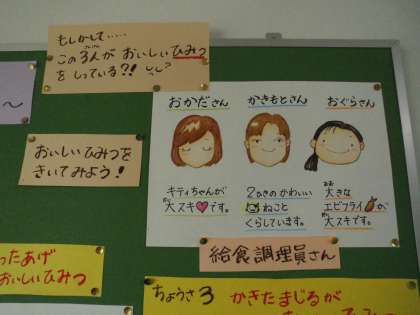 もしかして‥‥‥
この3人が おいしいひみつ
を しっている?!
〜
おいしいひみつを
きいてみよう!
おかださん
キティちゃんが
大スキです。
かきもとさん
2ひきの かわいい
ねこと
くらしています。
おぐらさん
大きな
エビフライが、
大スキです。
給食調理員さん
ったあげ
おいしいひみつ
ちょうさ 3 かきたまじるが